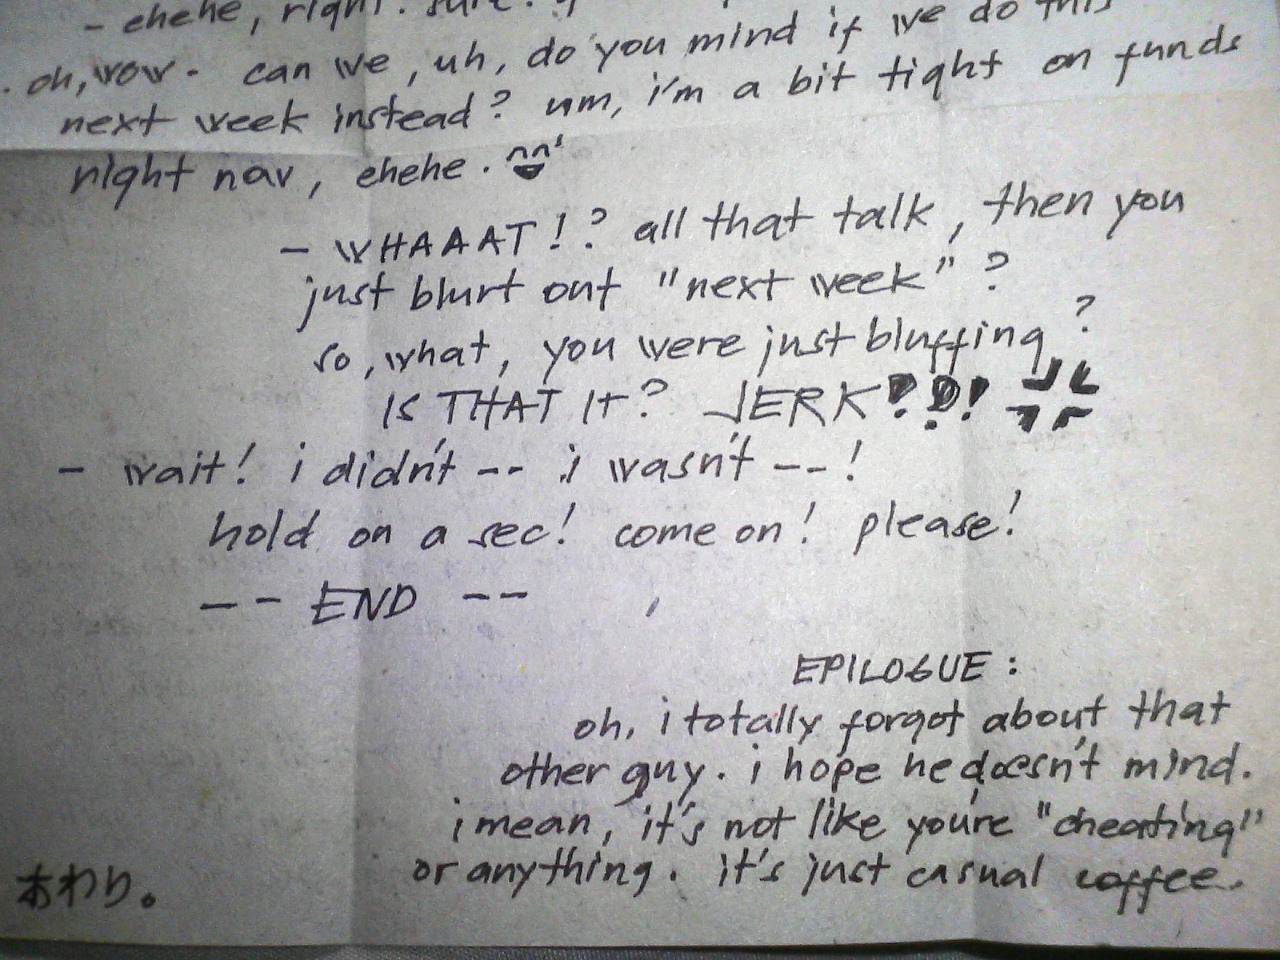 - ehehe, right. sure.
. oh, wow. can we, uh, do you mind if we do this
next week instead? um, i'm a bit tight on funds
right now, ehehe.
- WHAAAT!? all that talk, then you
just blurt out "next week"?
so, what, you were just bluffing?
IS THAT IT? JERK??!
- wait! i didn't -- i wasn't --!
hold on a sec! come on! please!
-- END --
EPILOGUE:
oh, i totally forgot about that
other guy. i hope he doesn't mind.
i mean, it's not like you're "cheating"
or anything. it's just casual coffee.
おわり。